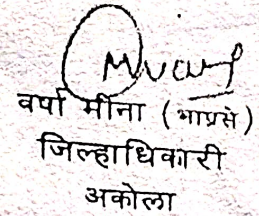 वर्षा मीना (भाप्रसे)
जिल्हाधिकारी
अकोला